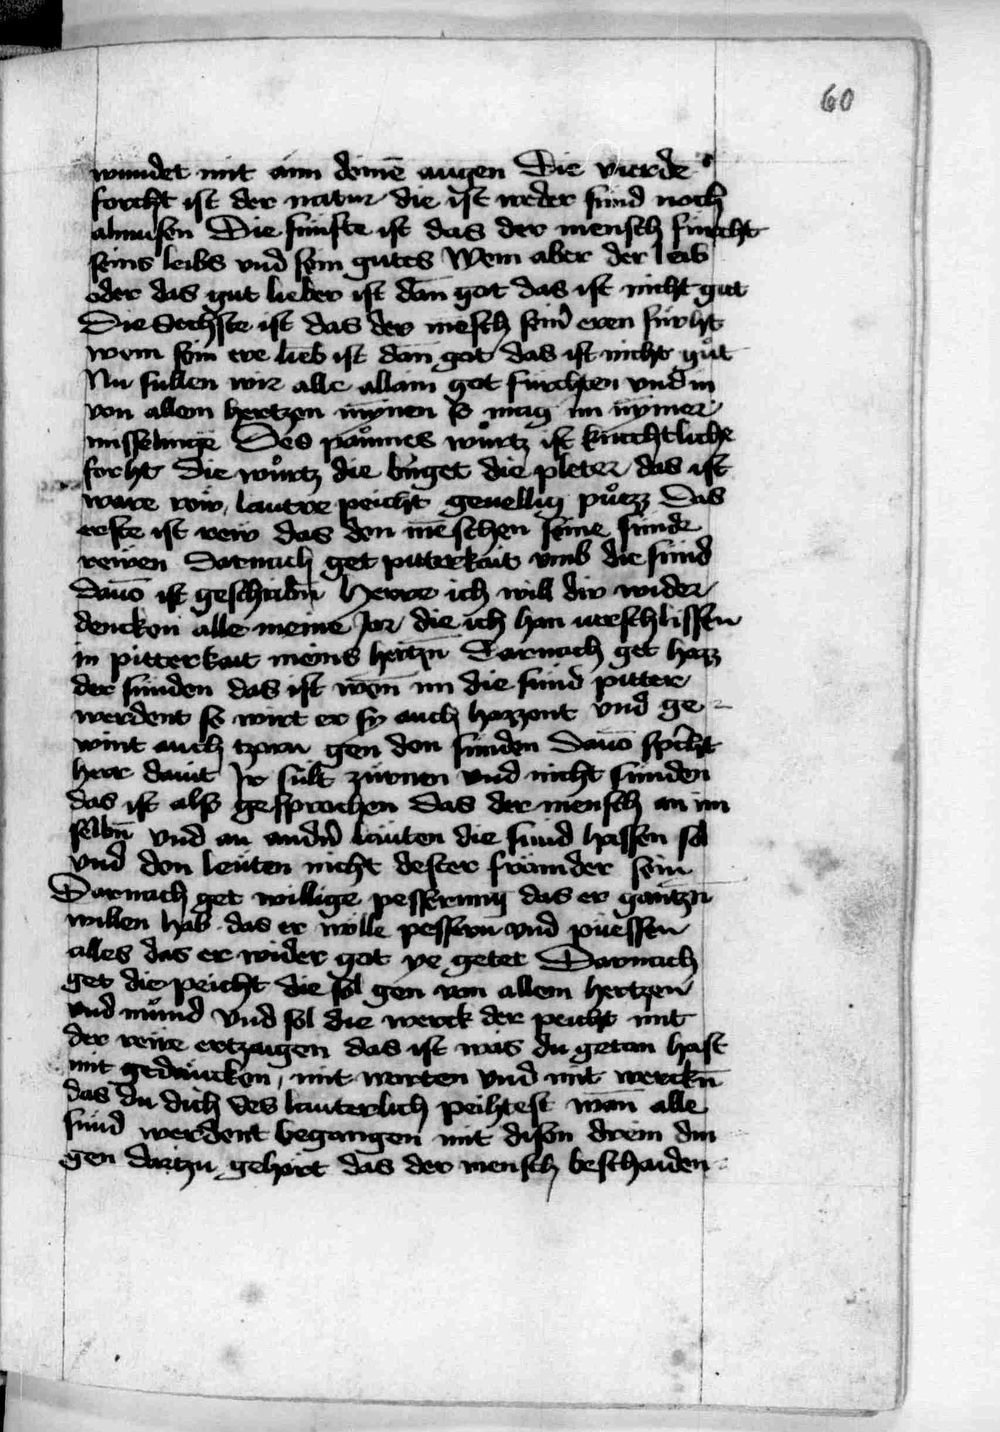 60
wundet mit aim deinē augen Die vierde
forcht ist der natur die ist weder sund noch
almusen Die funfte ist das der mensch furcht
seins leibs vnd sein gutes Wem aber der leib
oder das gut lieber ist dan̄ got das ist nicht gut
Die Sechste ist das der mēsch sein̄ eren furht
wem sein ere lieb ist dan̄ got das ist nicht gůt
Nu sullen wir alle allain got furchten vnd in
von allem hertzen mynen so mag im nymer
misselinge Des paůmes wůrtz ist knechtliche
forht Die wůrtz die birget die pleter das ist
ware rew, lautre peicht geuellig půezz Das
erste ist rew das den mēschen seine sunde
rewen Darnach get pitterkait vmb die sund
dauō ist geschribn̄ Herre ich will dir wider
dencken alle meine Jar die ich han verschlissen
in pitterkait meins hertzn̄ Darnach get hazz
der sunden das ist wen̄ im die sund pitter
werdent so wirt er sy auch hazzent vnd ge-
wint auch tzorn gen den sunden Dauō spricht
herr dauit Ir sült zürnen vnd nicht sunden
das ist als gesprochen das der mensch an im
selbn̄ vnd an andn̄ läuten die sund hassen sol
vnd den leüten nicht dester främder sein
Darnach get willige pesserung das er gantzn̄
willen hab das er wölle pessern vnd püessen
alles das er wider got ye getet Darnach
get die peicht die sol gen von allem hertzen
vnd můnd vnd sol die werck der peicht mit
der reüe ertzaigen das ist was du getan hast
mit gedäncken, mit worten vnd mit werckn̄
das du dich des lauterlich peihtest wan̄ alle
sund werdent begangen mit disen drein din
gen dartzu gehört das der mensch beschaiden-